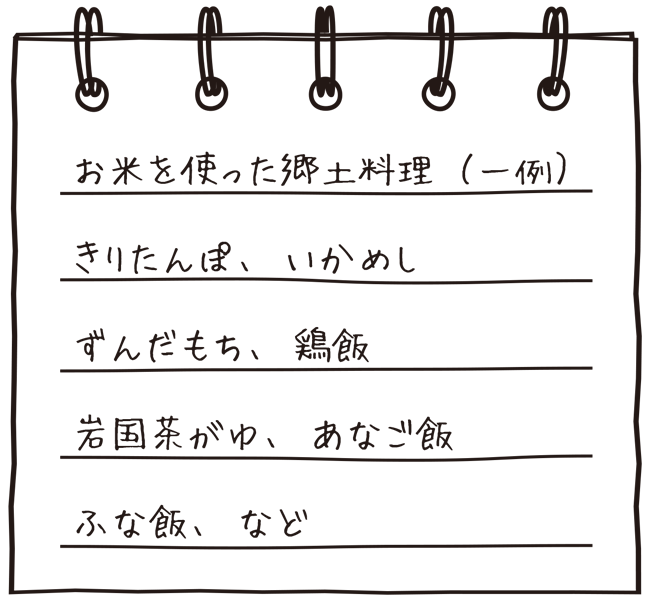 お米を使った郷土料理（一例）
きりたんぽ、いかめし
ずんだもち、鶏飯
岩国茶がゆ、あなご飯
ふな飯、など